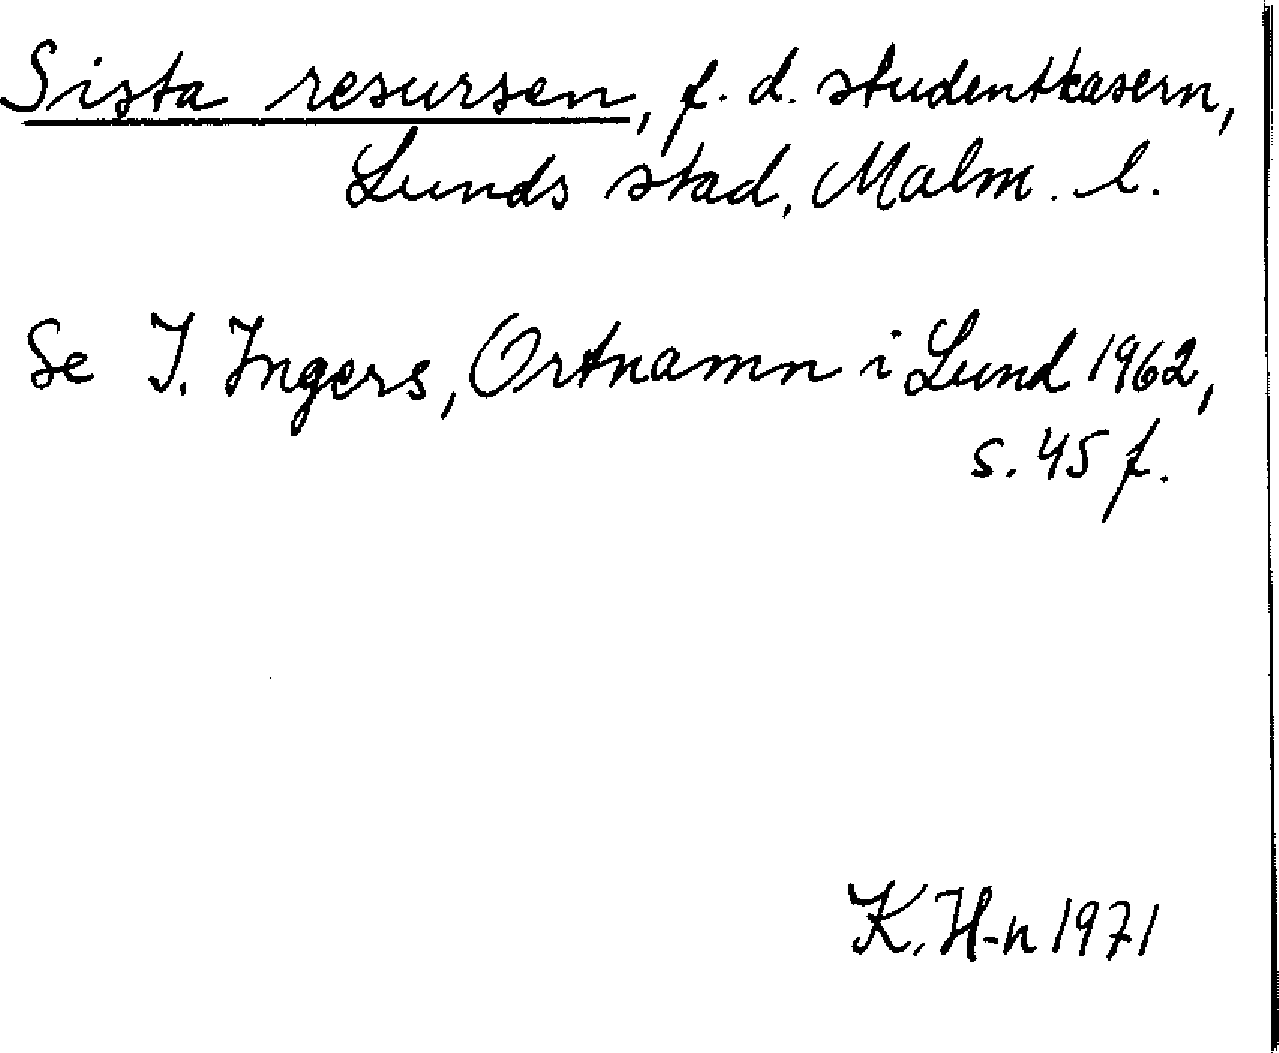 Sista resursen, f. d. studentkasern,
Lunds stad, Malm. l.
Se I. Ingers, Ortnamn i Lund 1962,
s. 45 f.
K. H-n 1971